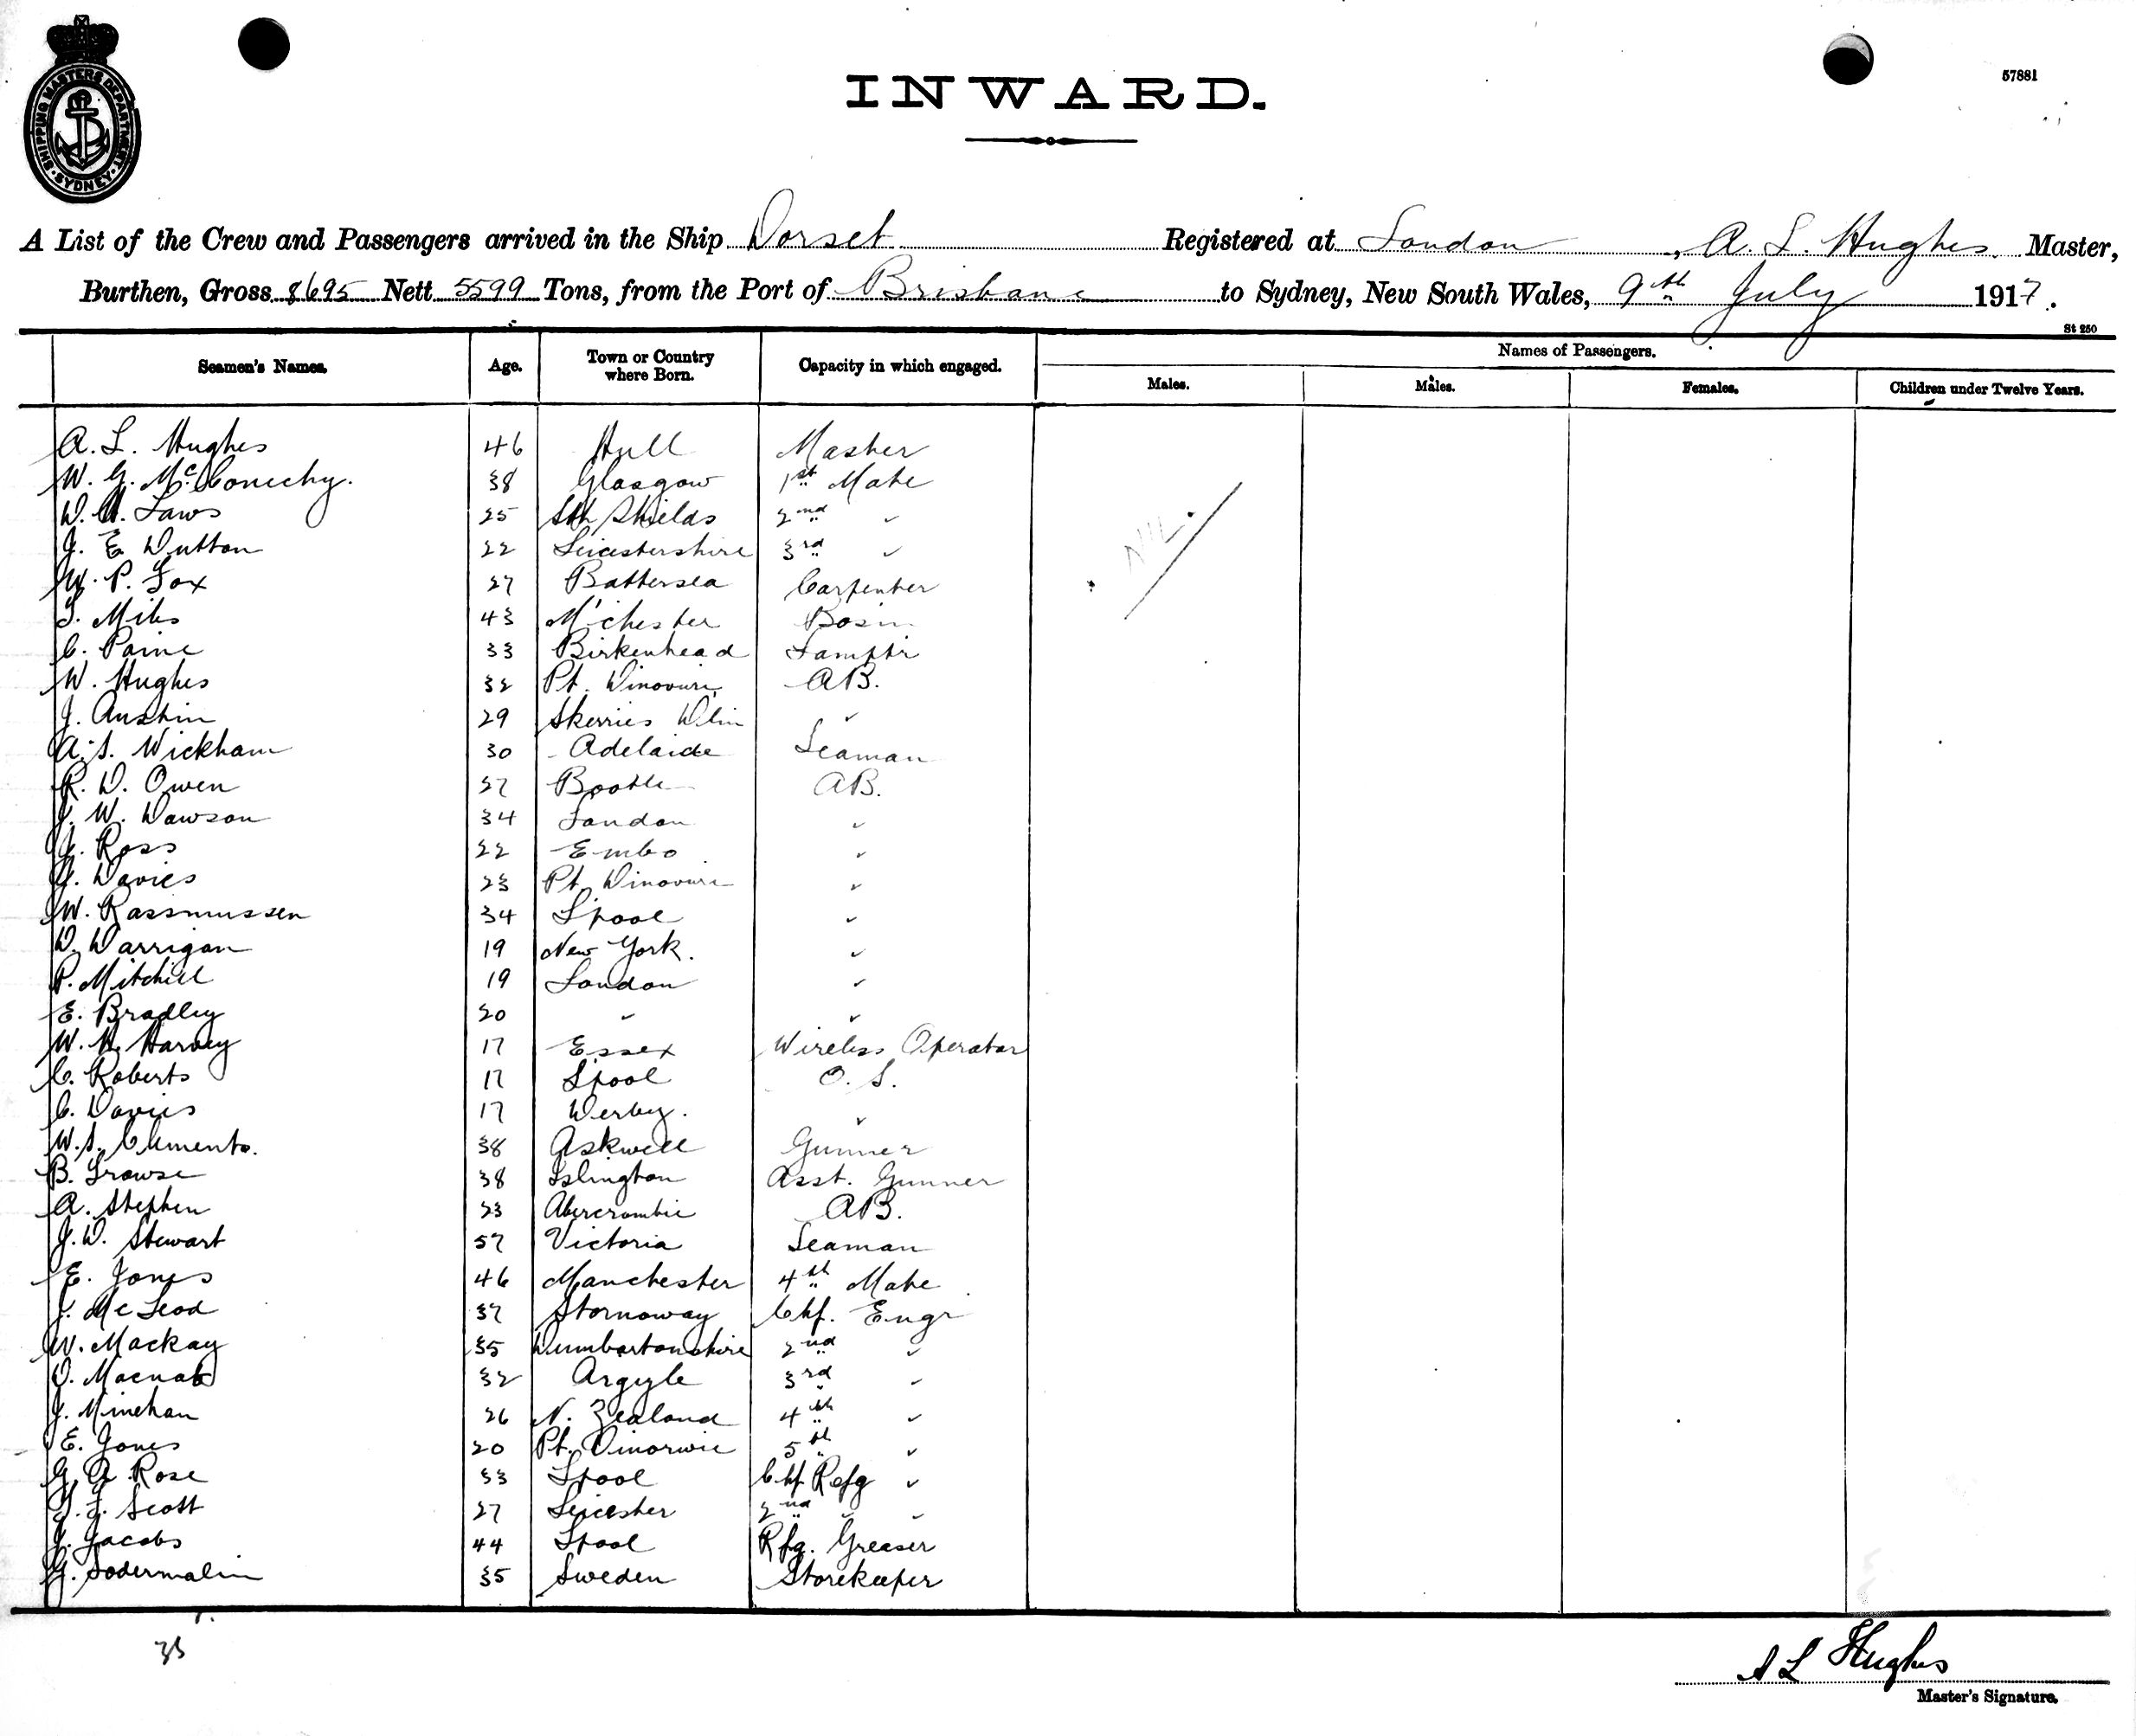 SHIPPING MASTERS DEPARTMENT
SYDNEY
57881
INWARD.
A List of the Crew and Passengers arrived in the Ship Dorset Registered at London, A. L. Hughes Master,
Burthen, Gross 8695 Nett 5599 Tons, from the Port of Brisbane to Sydney, New South Wales, 9th July 1917.
St 250
Seamen's Names. Age. Town or Country where Born. Capacity in which engaged. Names of Passengers.
Males. Males. Females. Children under Twelve Years.
A. L. Hughes 46 Hull Master
W. G. McConechy. 38 Glasgow 1st Mate
D. A. Laws 25 Sth Shields 2nd "
J. E. Dutton 22 Leicestershire 3rd "
W. P. Fox 27 Battersea Carpenter
Nil.
T. Miles 43 M'chester Bosun
C. Paine 33 Birkenhead Lamptr
W. Hughes 32 Pt. AB.
J. Austin 29 Skerries Dlin "
A. S. Wickham 30 Adelaide Seaman
R. D. Owen 27 Bootle AB.
J. W. Dawson 34 London "
J. Ross 22 Embo "
J. Davies 23 Pt. "
W. Rassmussen 34 L'pool "
D. Darrigan 19 New York. "
P. Mitchell 19 London "
E. Bradley 20 " "
W. H. Harvey 17 Essex Wireless Operator
C. Roberts 17 L'pool O. S.
C. Davies 17 Derby. "
W. S. Clements. 38 Askwell Gunner
B. Trowse 38 Islington Asst. Gunner
A. Stephen 23 Abercrombie AB.
J. D. Stewart 57 Victoria Seaman
E. Jones 46 Manchester 4th Mate
J. McLeod 37 Stornoway Chf. Engr
W. Mackay 35 Dumbartonshire 2nd "
D. Macnab 32 Argyle 3rd "
J. Minehan 26 N. Zealand 4th "
E. Jones 20 Pt. Dinorwic 5th "
G. A. Rose 33 L'pool Chf Refg "
T. F. Scott 27 Leicester 2nd " "
J. Jacobs 44 L'pool Rfg. Greaser
G. Sodermalin 35 Sweden Storekeeper
35
A L Hughes
Master's Signature.